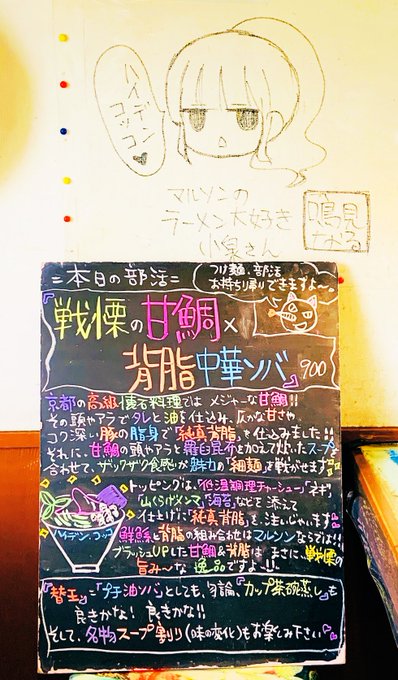 ハイデンコッコン♥
マルソンの
ラーメン大好き
小泉さん
鳴見
なる
=本日の部活=
つけ麺、部活
お持ち帰りできますよ~。
『戦慄の甘鯛×
背脂中華ソバ』900
京都の高級懐石料理では メジャーな甘鯛!!
その頭やアラでタレと油を仕込み、仄かな甘さや、
コク深い豚の脂身で『純真背脂』を仕込みました!!
それに、甘鯛の頭やアラと羅臼昆布を加えて炊いたスープを
合わせて、ザックザク食感が魅力の『細麺』を戦がせます
トッピングは、『低温調理チャーシュー』『ネギ』
『山くらげメンマ』『海苔』などを添えて
仕上げに『純真背脂』を注いじゃいます
鮮鯛と背脂の組み合わせはマルソンならでは!!
ブラッシュUPした甘鯛&背脂は まさに、戦慄の
旨み~な 逸品ですよ~!!
ハイデン.コッコ
『替玉』『プチ油ソバ』としても、勿論、『カップ茶碗蒸し』も
良きかな! 良きかな!!
そして、名物スープ割り(味の変化)もお楽しみ下さい